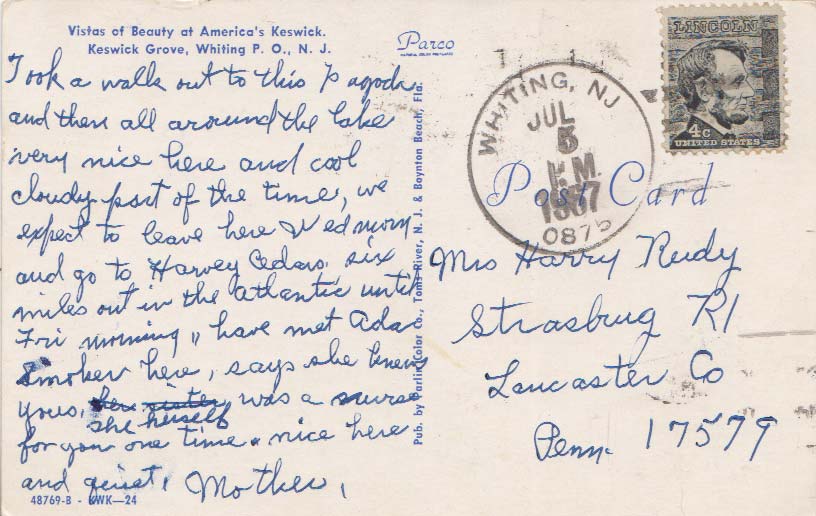 Vistas of Beauty at America's Keswick.
Keswick Grove, Whiting P. O., N. J.
Parco
Took a walk out to this Pagoda
and then all around the lake
very nice here and cool
cloudy part of the time, we
expect to leave here Wed morn
and go to Harvey Cedars, six
miles out in the atlantic until
Fri morning, have met Ada
Smoker here, says she knows
yous, her sister was a nurse
she herself
for you one time. nice here
and quiet, Mother,
48769-B - KWK—24
Pub. by Parlin Color Co., Toms River, N. J. & Boynton Beach, Fla.
WHITING, NJ
JUL
5
PM
1967
0875
LINCOLN
4c
UNITED STATES
Post Card
Mrs Harry Rudy
Strasbrug R1
Lancaster Co
Penn. 17579